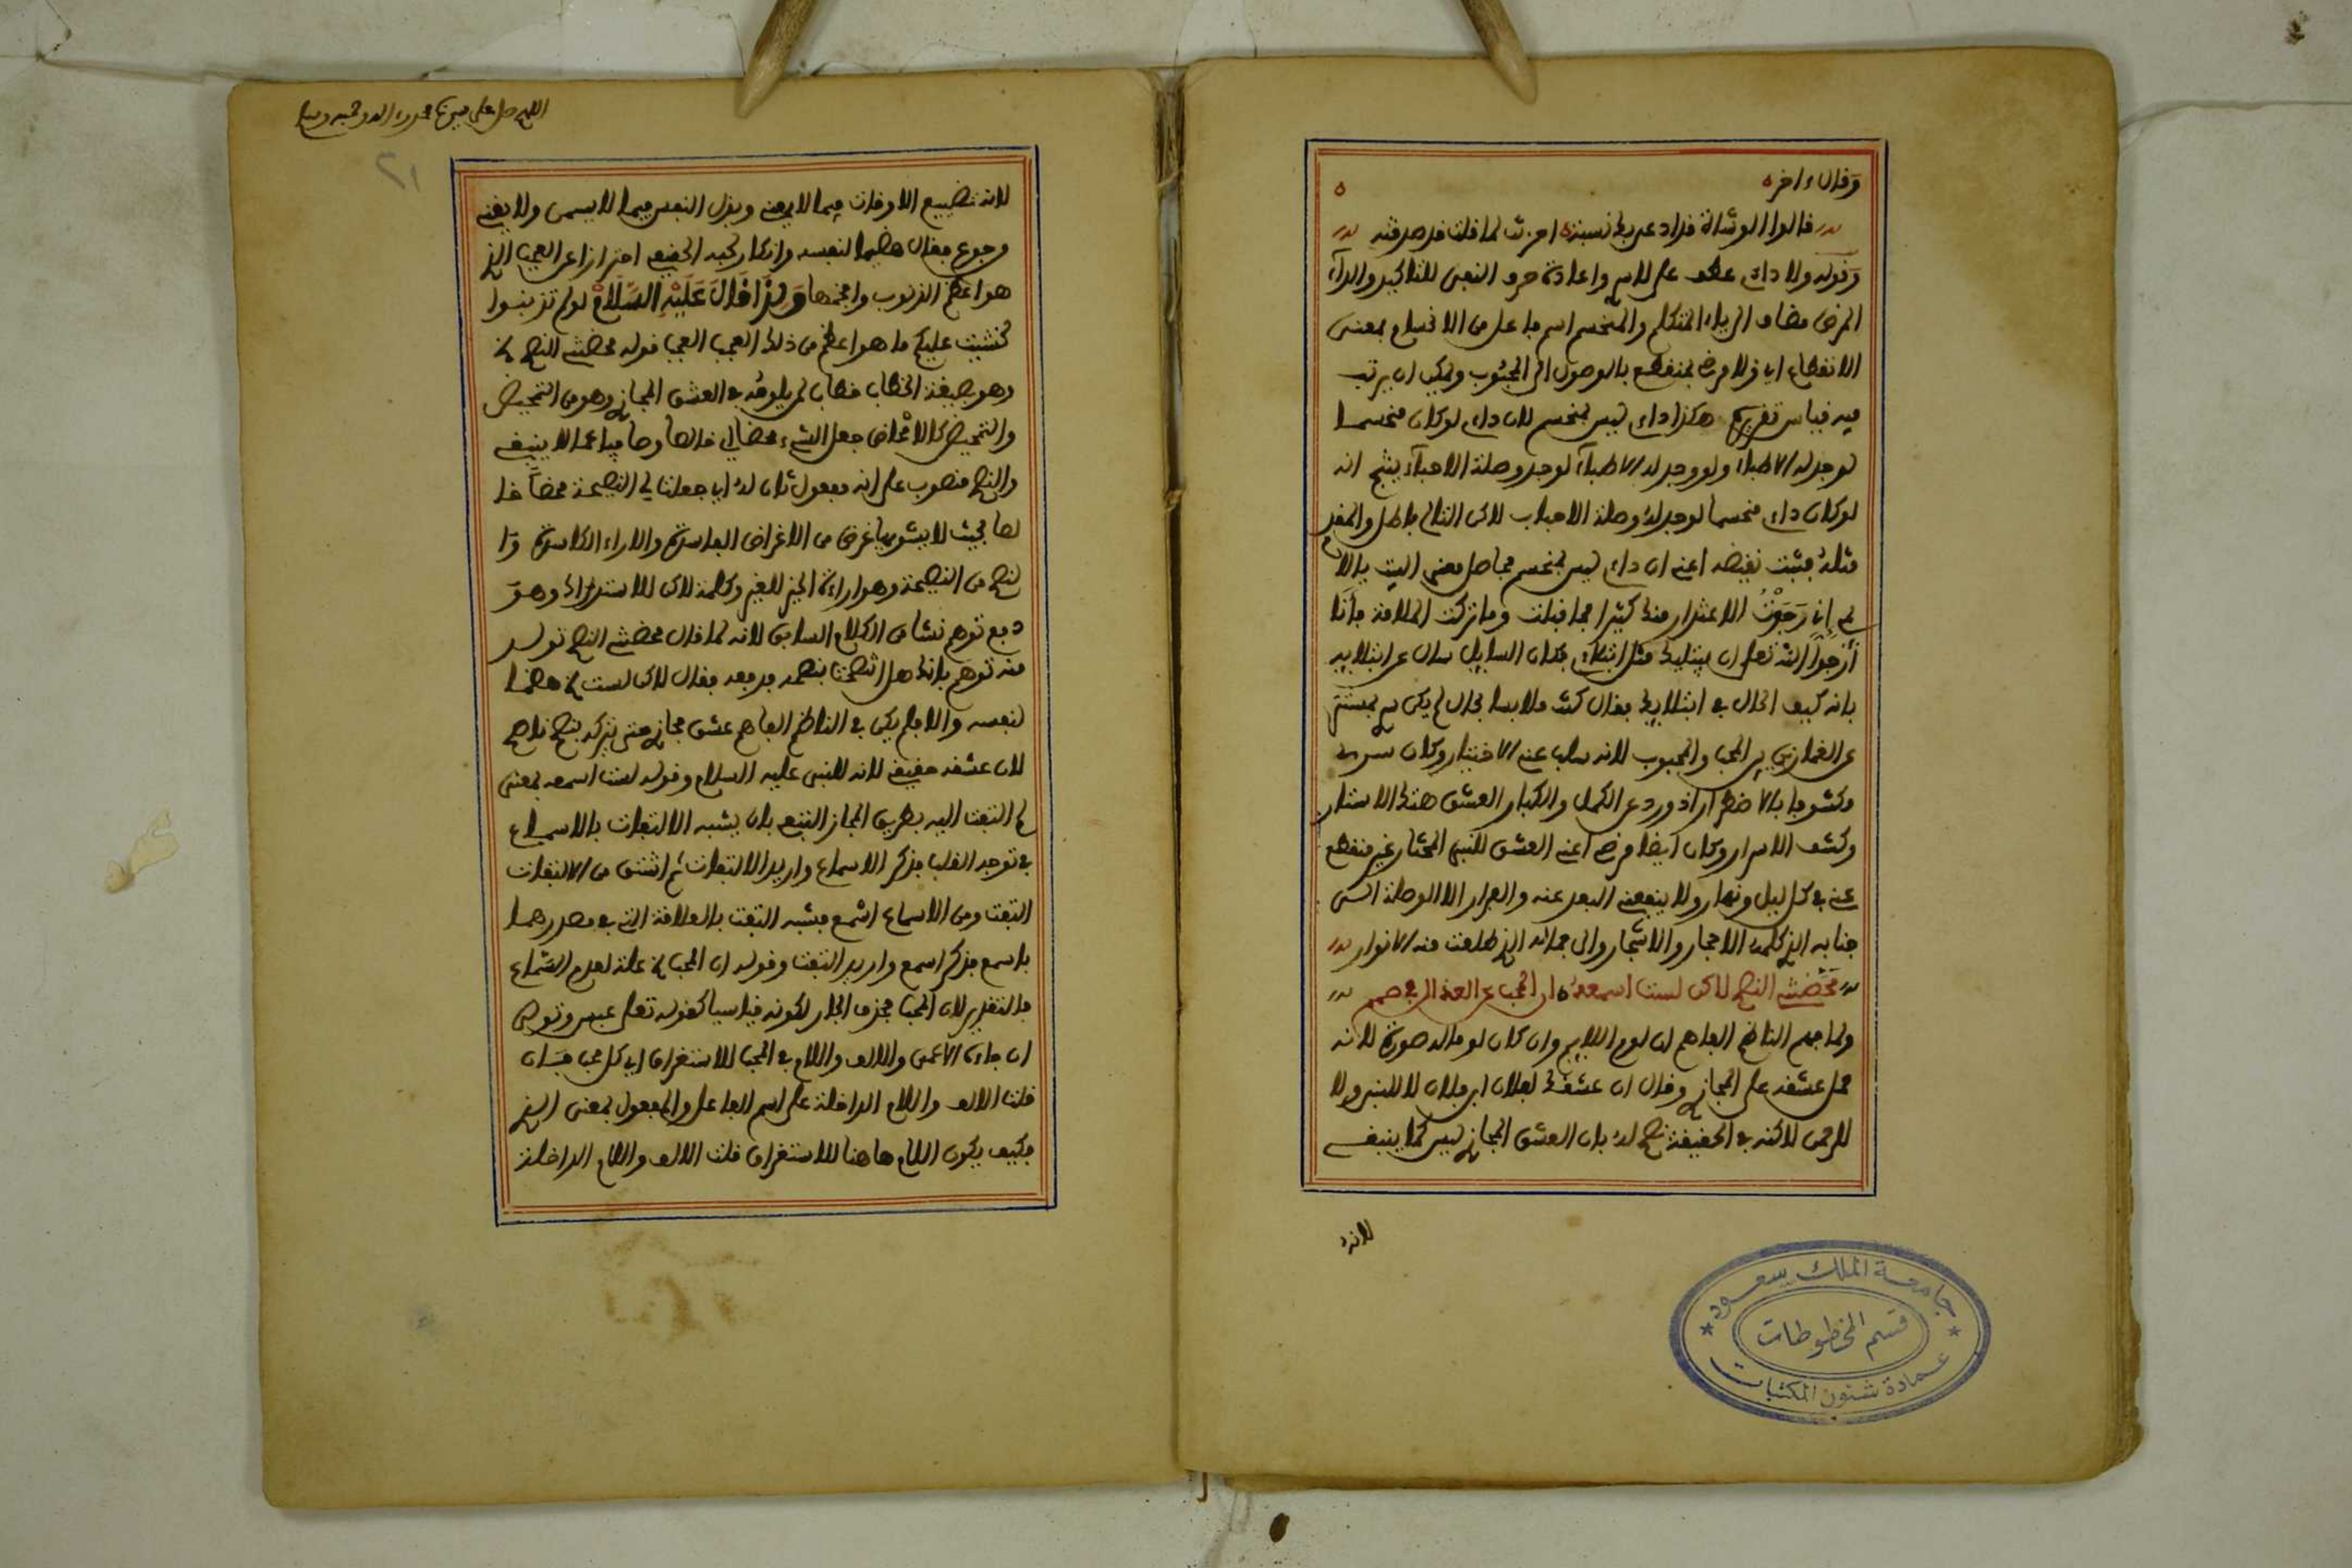 وقال ءاخر
قالوا الوشاة فلاد عربك نسبة
وقوله ولا داءي عطف على لاسر واعادة حرف النفي للتاكيد والداء
المرض مضاف الى ياء المتكلم والمنحسم اسم فاعل من الانحسام بمعنى
الانقطاع اي ولا مرضي بمنقطع بالوصول الى المحبوب ويمكن ان يرتب
فيه قياس تقريره هكذا داءي ليس بمنحسم لان داءي لو كان منحسما
لوجد له الاطباء ولو وجد له الاطباء لوجد وصلة الاحباء ينتج انه
لو كان داءي منحسما لوجد له وصلة الاحباب لاكن التالي باطل والمقدم
مثله فثبت نقيضه اعني ان داءي ليس بمنحسم فحاصل معنى البيت يا لا
ىمي اني رجوت الاعتذار منك كثيرا فما قبلت وما تركت الملامة فانا
أرجوا الله تعلى ان يبتليك مثل ابتلاءي فكان السايل سال عن ابتلايه
بانه كيف الحال في ابتلايك فقال كنت ملابسا بحال لم يكن سري بمستتر
عن الغمازين بين المحب والمحبوب لانه سلب عنه الاختيار وكان سره
مكشوفا بالاضطرار اذ ورد عن الكمل والكبار العشق هتك الاستار
وكشف الاسرار وكان ايضا مرضي اعني العشق للنبي المختار غير منقطع
عني في كل ليل ونهار ولا ينفعني البعد عنه والفرار الا الوصلة الى
جنابه الذي كلمه الاحجار والاشجار والى جماله الذي طلعت منه الانوار
محضتني النصح لاكن لست اسمعه ان المحب عن العذال في صمم
ولما فهم الناظم الفاهم ان لوم اللايم وان كان لوما له صورة لانه
حمل عشقه على المجازي وقال ان عشقك لفلان ابن فلان لا للنبي ولا
للرحمن لاكنه في الحقيقة نصح له بان العشق المجازي ليس كما ينبغي
لانه
اللهم صل على سيدنا محمد وءاله وصحبه وسلم
٢١
لانه تضييع الاوقات فيما لا يعني وبذل النفس فيما لا يسمن ولا يغني
من جوع فقال هضما لنفسه وانكار لحبه الحقيقي احترازا عن العجب الذي
هو اعظم الذنوب وافخمها ولذا قال عليه السلام لو لم تذنبوا
لخشيت عليكم ما هو اعظم من ذلك العجب العجب قوله محضتني النصح
وهو بصيغة الخطاب خطاب لمن يلومه في العشق المجازي وهو من التمحيض
والتمحيض كالامحاض جعل الشيء محضا اي خالصا وصافيا عما لا ينبغي
والنصح منصوب على انه مفعول ثان له اي جعلت لي النصيحة محضا خا
لصا بحيث لا يشوبها غرض من الاغراض الفاسدة والاراء الكاسدة وا
لنصح من النصيحة وهو ارادة الخير للغير وكلمة لاكن للاستدراك وهو
دفع توهم نشا من الكلام السابق لانه لما قال محضتني النصح تولد
منه توهم بانك هل انتصحت بنصحه فدفعه فقال لاكن لست هضما
لنفسه والا فلم يكن في الناظم الفاهم عشق مجازي حتى يتركه بنصح ناصح
لان عشقه حقيقي لانه للنبي عليه السلام وقوله لست اسمعه بمعنى
لم التفت اليه بطريق المجاز التبعي بان يشبه الالتفات بالاسماع
في توجه القلب فذكر الاسماع واريد الالتفات ثم اشتق من الالتفات
التفت ومن الاسماع اسمع فشبه التفت بالعلاقة التي في مصدرهما
باسمع فذكر اسمع واريد التفت وقوله ان المحب علة لعدم السماع
فالتقدير لان المحب فحذف الجار لكونه قياسيا كقوله تعلى عبس وتولى
ان جاءه الاعمى والالف واللام في المحب للاستغراق اي كل محب فان
قلت الالف واللام الداخلة على اسم الفاعل والمفعول بمعنى الذي
فكيف يكون اللام هاهنا للاستغراق قلت الالف واللام الداخلة
جامعة الملك سعود
قسم المخطوطات
عمادة شئون المكتبات